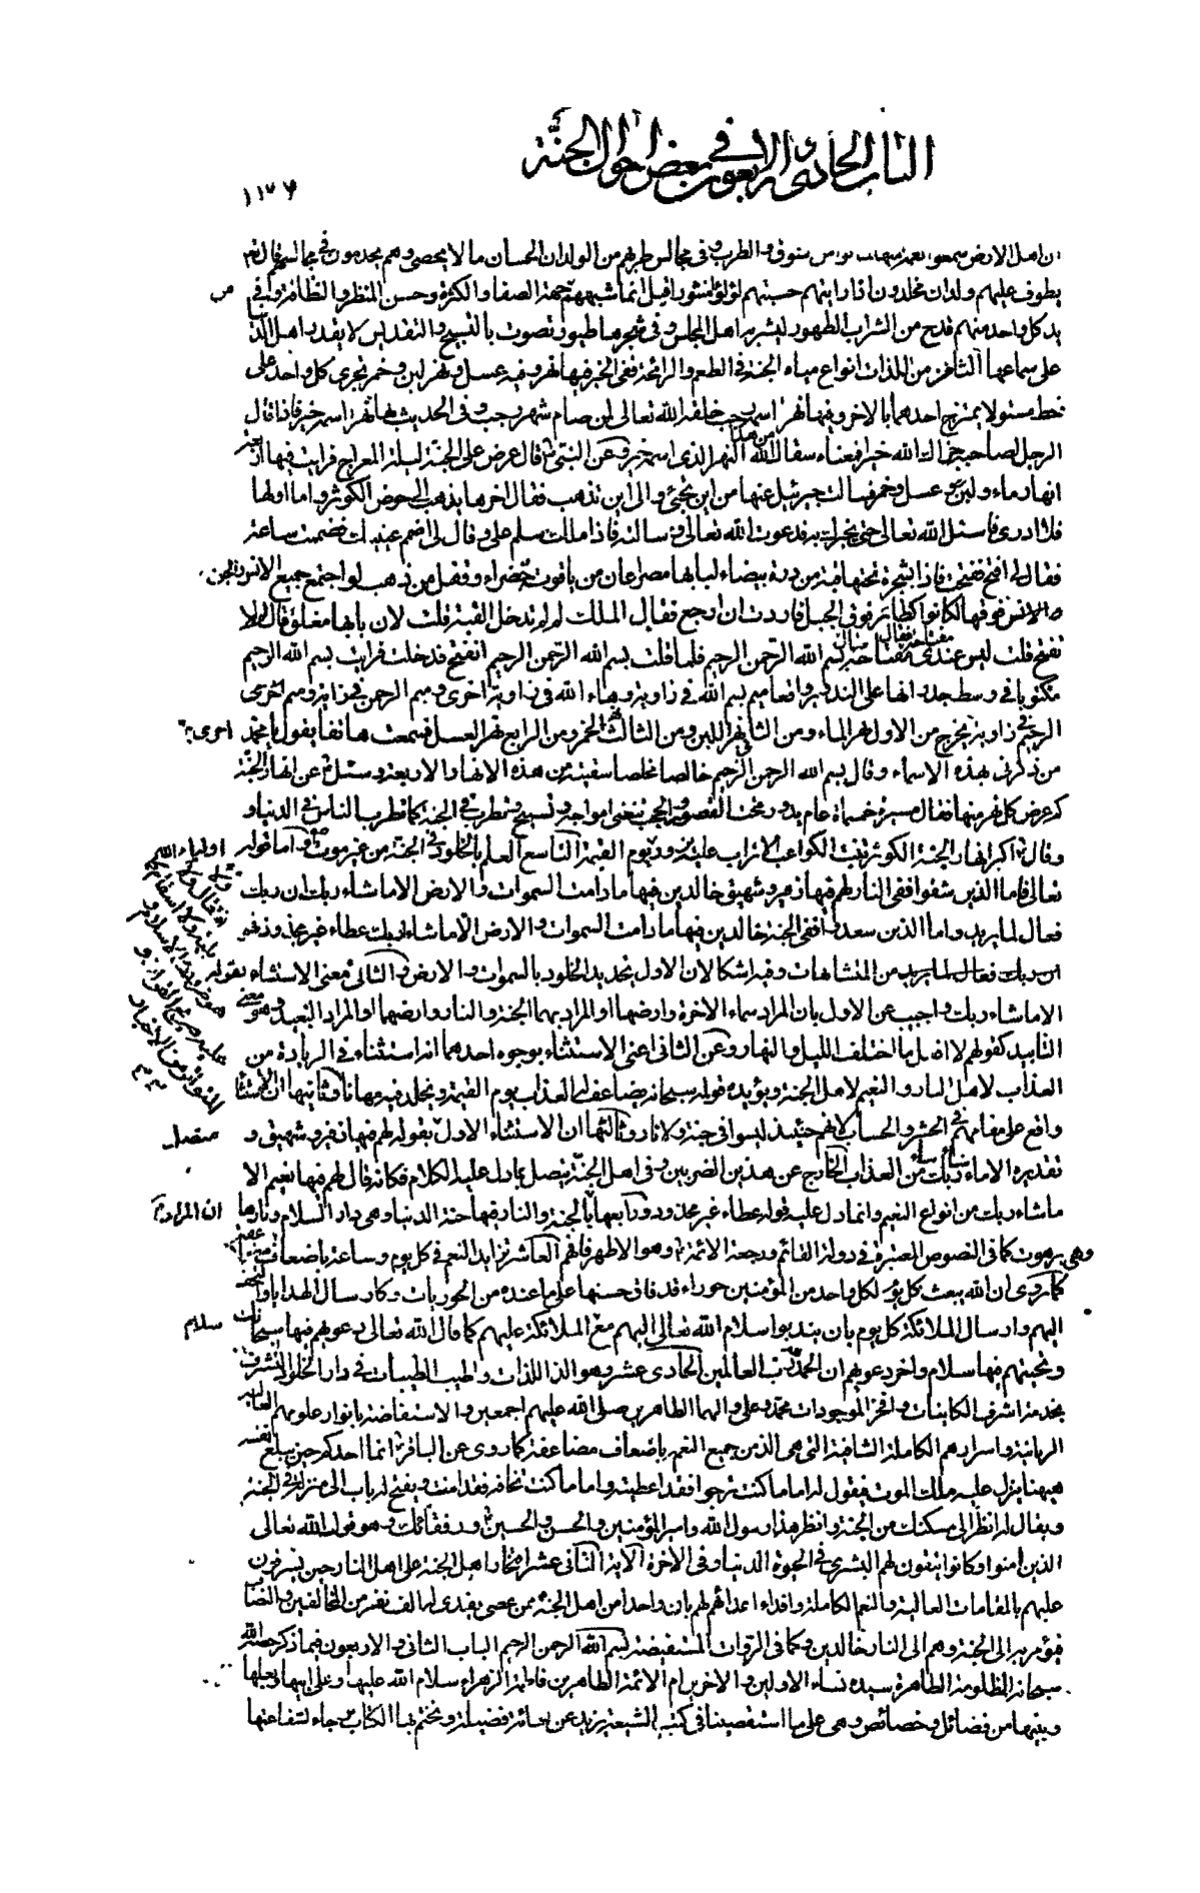 الباب الحادى والاربعون فى بعض احوال الجنة
١١٧٦
ان اهل الارض سمعوا نغمة منها والطرب وفى مجالس طربهم من الولدان الحسان ما لا يحصى وهم يخدمون فى مجالسهم قال تعالى
يطوف عليهم ولدان مخلدون اذا رايتهم حسبتهم لؤلؤا منثورا قيل انما شبههم جهة الصفا والكثرة وحسن المنظر والنظافة وفى
يد كل واحد منهم قدح من الشراب الطهور ليشربه اهل المجلس وفى شجرها طيور تصوت بالتسبيح والتقديس لا يقدر اهل الدنيا
على سماعها الثامن من اللذات انواع مياه الجنة فى الطعم والرائحة ففى الخبر فيها نهر وفيه عسل ونهر لبن وخمر تجرى كل واحد على
خط مستو لا يمتزج احدهما بالاخر وفيها نهر اسمه رجب خلقه الله تعالى لمن صام شهر رجب وفى الحديث بها نهر اسمه خير فاذا قال
الرجل لصاحبه جزاك الله خيرا فمعناه سقاك الله من هذا النهر الذى اسمه خير وعن النبى قال عرض على الجنة ليلة المعراج فرايت فيها اربعة
انهار ماء ولبن وعسل وخمر فسالت جبرئيل عنها من اين تجئ والى اين تذهب فقال اخرها يذهب الى حوض الكوثر واما اولها
فلا ادرى فاسئل الله تعالى حتى يخبرك به فدعوت الله تعالى وسالته فاذا ملك سلم على وقال لى اضم عينيك فضممت ساعة
فقال لى افتح ففتحت فاذا شجرة تحتها قبة من درة بيضاء لبابها مصراعان من ياقوت خضراء وقفل من ذهب لو اجتمع جميع الانس والجن
والانس فوقها لكانوا كطائر فوق الجبل فاردت ان ارجع فقال الملك لم لم تدخل القبة قلت لان بابها مغلق قال لم لا
تفتح قلت ليس عندى مفتاحه فقال مفتاحه بسم الله الرحمن الرحيم فلما قلت بسم الله الرحمن الرحيم انفتح فدخلت فرايت بسم الله الرحيم
مكتوبا فى وسط جدرانها على التدوير واقعا ميم بسم الله فى زاوية وهاء الله فى زاوية اخرى وميم الرحمن فى زاوية وميم اخرى
الرحيم فى زاوية يخرج من الاول نهر الماء ومن الثانى نهر اللبن ومن الثالث نهر الخمر ومن الرابع نهر العسل فسمعت هاتفا يقول يا محمد
من ذكرنى بهذه الاسماء وقال بسم الله الرحمن الرحيم خالصا مخلصا سقيته من هذه الانهار الاربعة وسئل عن انهار الجنة
كم عرض كل نهر منها فقال مسيرة خمسمائة عام يدور تحت القصور والحجب تتغنى امواجه وتسبح وتطرب فى الجنة كما تطرب الناس فى الدنيا و
وقال اكبر انهار الجنة الكوثر تنبت الكواعب الاتراب عليه يوم القيمة التاسع العلم بالخلود فى الجنة من غير موت واما قوله
تعالى فاما الذين شقوا ففى النار لهم فيها زفير وشهيق خالدين فيها ما دامت السموات والارض الا ما شاء ربك ان ربك
فعال لما يريد واما الذين سعدوا ففى الجنة خالدين فيها ما دامت السموات والارض الا ما شاء ربك عطاء غير مجذوذ فهو
ان ربك فعال لما يريد من المتشابهات وفيه اشكالان الاول تحديد الخلود بالسموات والارض والثانى معنى الاستثناء بقوله
الا ما شاء ربك واجيب عن الاول بان المراد سماء الاخرة وارضها او المراد بهما الجنة والنار وارضهما او المراد التبعيد وهو معنى
التابيد كقولهم لا افعل ما اختلف الليل والنهار وعن الثانى اعنى الاستثناء بوجوه احدهما انه استثناء فى الزيادة من
العذاب لاهل النار والنعيم لاهل الجنة ويؤيده قوله سبحانه يضاعف له العذاب يوم القيمة ويخلد فيه مهانا وثانيها ان الاستثناء
واقع على مقامهم فى الحشر والحساب لانهم حينئذ ليسوا فى جنة ولا نار وثالثها ان الاستثناء الاول بقوله لهم فيها زفير وشهيق و متصل
تقديره الا ما شاء ربك من العذاب الخارج عن هذين الضربين وفى اهل الجنة يتصل بما دل عليه الكلام فكانه قال لهم فيها نعيم الا
ما شاء ربك من انواع النعيم وانما دل عليه قوله عطاء غير مجذوذ ورابعها بالجنة والنار فيها جنة الدنيا وهى دار السلام ونارها ان المراد
وهى برهوت كما فى النصوص المعتبرة فى دولة القائم ورجعة الائمة وهو الاظهر فافهم العاشر تزايد النعم فى كل يوم وساعة باضعاف
كما روى ان الله يبعث كل يوم لكل واحد من المؤمنين حوراء قد فاق حسنها على ما عنده من الحوريات وكارسال الهدايا والتحف
اليهم وارسال الملائكة كل يوم بان يبدوا سلام الله تعالى اليهم مع الملائكة عليهم كما قال الله تعالى دعويهم فيها سبحانك سلام
وتحيتهم فيها سلام واخر دعويهم ان الحمد لله رب العالمين الحادى عشر وهو الذ اللذات واطيب الطيبات فى دار الخلود التشرف
بخدمة اشرف الكاينات وافخر الموجودات محمد وعلى والهما الطاهرين صلى الله عليهم اجمعين والاستفاضة بانوار علومهم
الربانية واسرارهم الكاملة الشافية التى هى الذ من جميع النعم باضعاف مضاعفة كما روى عن الباقر انما احدكم حين يبلغ نفسه
هيهنا ينزل عليه ملك الموت فيقول له اما ما كنت ترجوا فقد اعطيته واما ما كنت تخافه فقد امنت ويفتح له باب الى منزله فى الجنة
ويقال له انظر الى مسكنك من الجنة وانظر هذا رسول الله وامير المؤمنين والحسن والحسين رفقائك وهو قول الله تعالى
الذين امنوا وكانوا يتقون لهم البشرى فى الحيوة الدنيا وفى الاخرة الاية الثانى عشر افتخار اهل الجنة على اهل النار حين يشرفون
عليهم بالمقامات العالية والنعم الكاملة وافداء اعدائهم لهم بان واحدا من اهل الجنة ممن عصى يفدى له الف نفر من المخالفين والنصاب
فيؤمر به الى الجنة وهم الى النار خالدين وكما فى الروات المستفيضة بسم الله الرحمن الرحيم الباب الثانى والاربعون فيما ذكر حق الله
سبحانه المظلومة الطاهرة سيدة نساء الاولين والاخرين ام الائمة الطاهرين فاطمة الزهراء سلام الله عليها وعلى ابيها وبعلها
وبنيها من فضائل وخصائص وهى على ما استقصينا فى كتب الشيعة يزيد عن مائة فضيلة ونختم بها الكتاب رجاء لشفاعتها